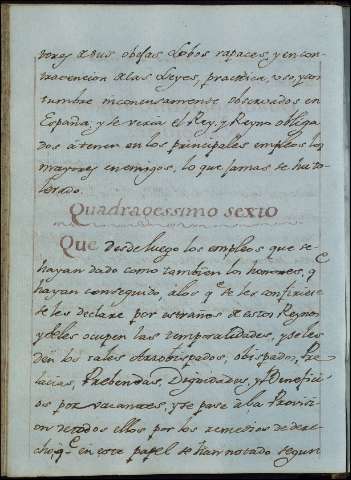 veres a sus obejas Lobos rapaces, y en con
travencion a las Leyes, practica, uso, y cos
tumbre inconcusamente observados en
España; y se vería el Rey, y Reyno obliga
dos a tener en los principales empleos los
mayores enemigos, lo que jamas se ha to
lerado.
Quadragessimo sexto
Que desde luego los empleos que se
hayan dado como tambien los honores, q^e
hayan conseguido, a los q^e se les confiriese
se les declare por estraños de estos Reynos
y se les ocupen las temporalidades, y se les
den los tales Arzobispados, obispados, Pre
lacias, Prebendas, Dignidades, y Benefici
os por vacantes, y se pase a la Provisi
on de todos ellos por los remedios de dere
cho, q^e en este papel se han notado segun